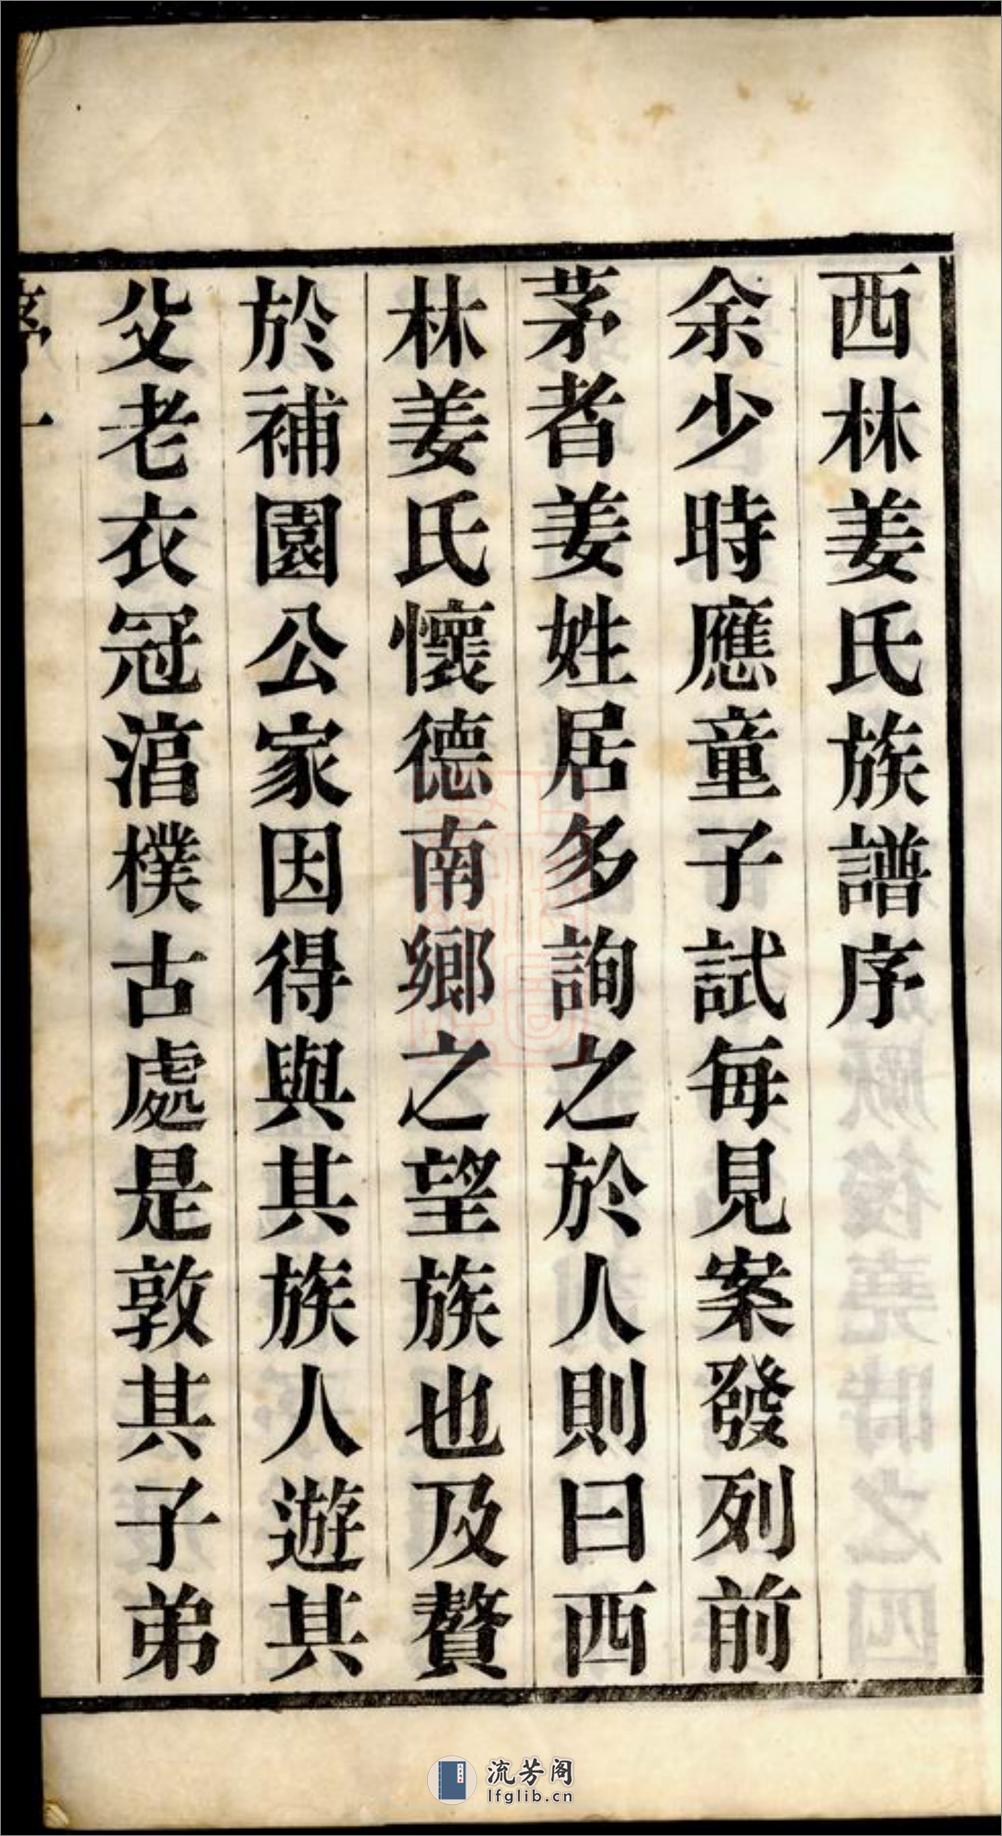 西林姜氏族譜序
余少時應童子試每見案發列前
茅者姜姓居多詢之於人則曰西
林姜氏懷德南鄉之望族也及贅
於補園公家因得與其族人遊其
父老衣冠湻樸古處是敦其子弟
序一
流芳阁
lfglib.cn